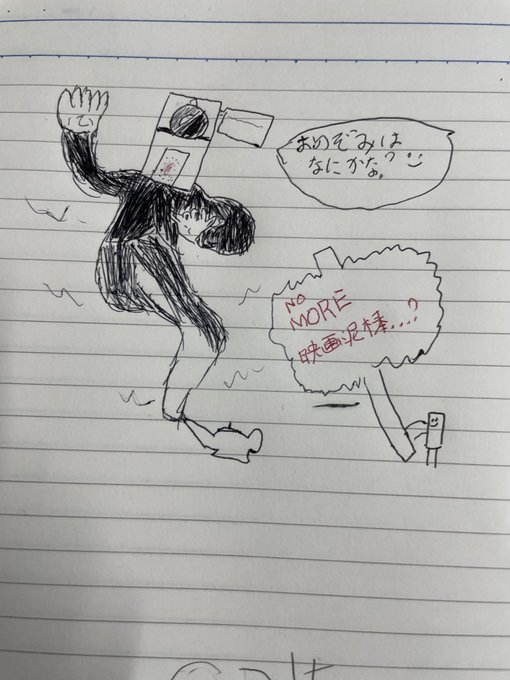 おのぞみは
なにかな?
NO
MORE
映画泥棒...?